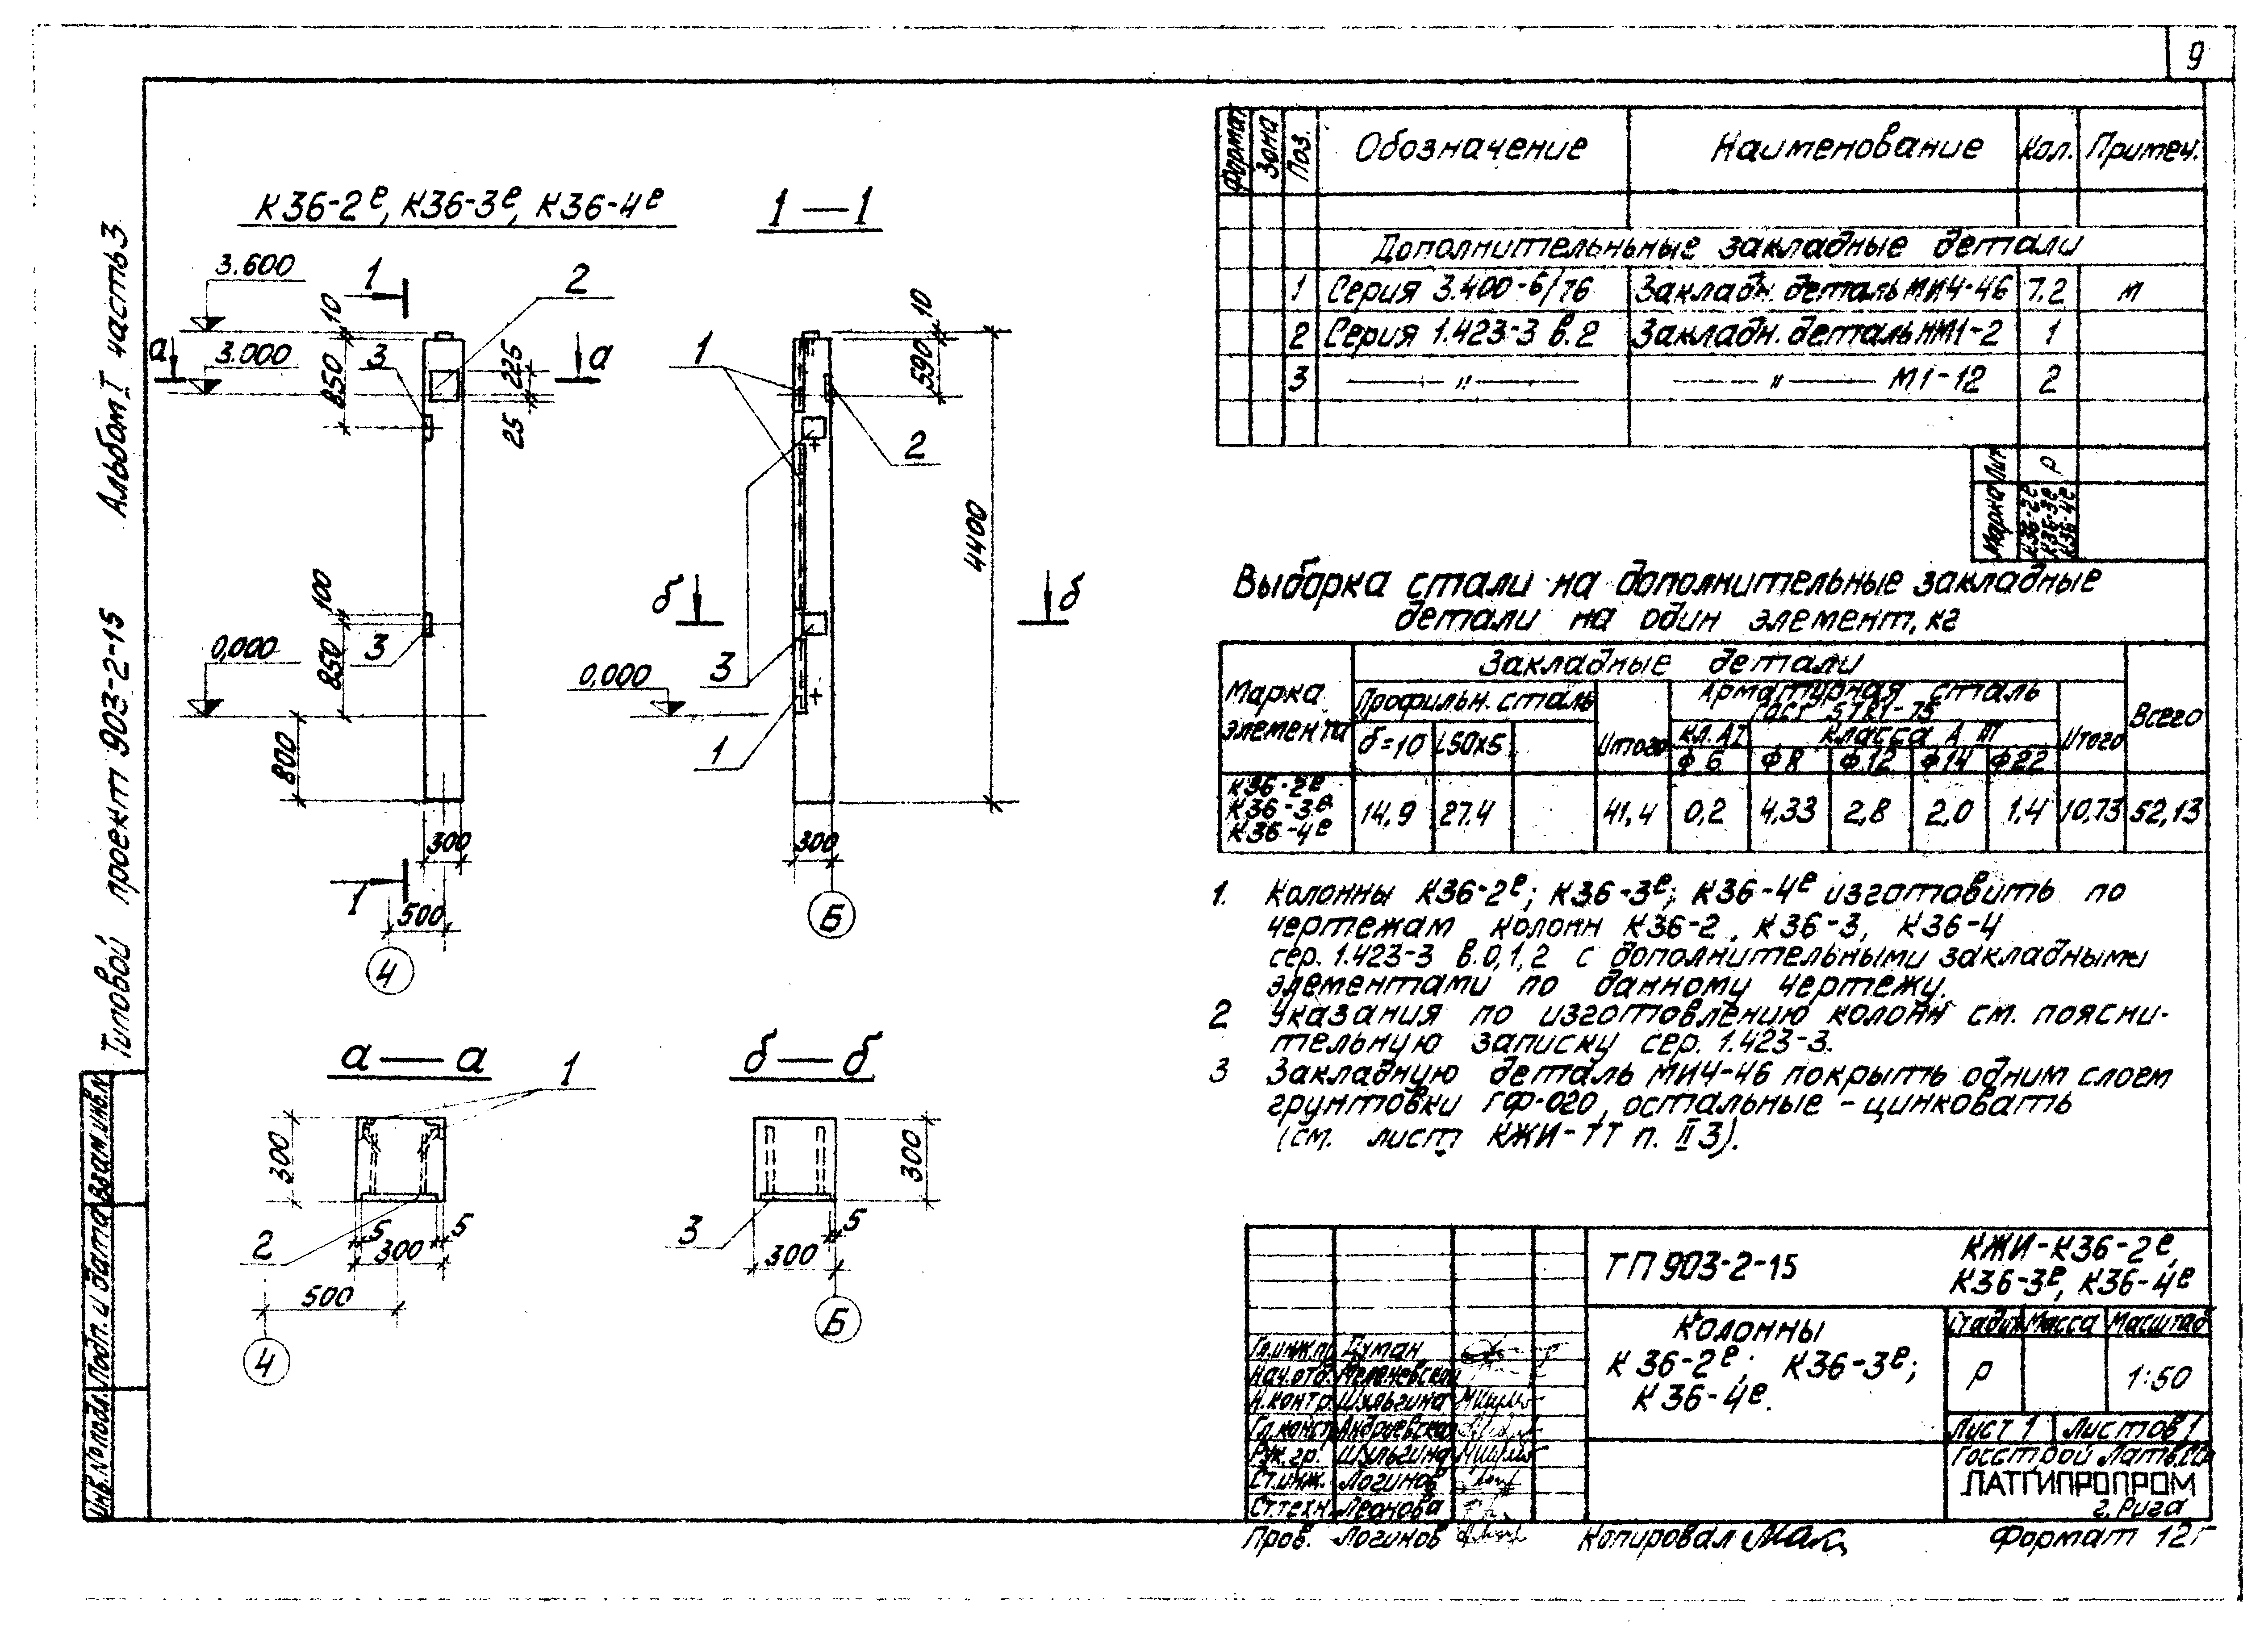 9
Типовой проект 903-2-15 Альбом I часть 3
К36-2е, К36-3е, К36-4е
1—1
3.600
3.000
0,000
0,000
1
1
2
3
3
а
а
10
850
225
25
100
850
800
300
500
4
1
2
3
1
10
590
4400
б
б
300
Б
а—а
1
300
2
5
5
300
500
4
б—б
300
3
5
300
Б
Формат Зона Поз. Обозначение Наименование Кол. Примеч.
Дополнительньные закладные детали
1 Серия 3.400-6/76 Закладн. деталь МИ4-46 7.2 м
2 Серия 1.423-3 в.2 Закладн. деталь НМ1-2 1
3 — " — — " — М1-12 2
Лит Р
Марка К36-2е К36-3е К36-4е
Выборка стали на дополнительные закладные
детали на один элемент, кг
Марка элемента
Закладные детали
Всего
Профильн. сталь
Арматурная сталь
δ=10 L50х5 Итого кл. АI Класса А III Итого
Ф6 Ф8 Ф12 Ф14 Ф22
К36-2е
К36-3е 14,9 27.4 41,4 0,2 4,33 2,8 2,0 1,4 10,73 52,13
К36-4е
1. Колонны К36-2е; К36-3е; К36-4е изготовить по
чертежам колонн К36-2, К36-3, К36-4
сер. 1.423-3 в.0,1,2 с дополнительными закладными
элементами по данному чертежу.
2 Указания по изготовлению колонн см. поясни-
тельную записку сер. 1.423-3.
3 Закладную деталь МИ4-46 покрыть одним слоем
грунтовки ГФ-020, остальные - цинковать
(см. лист КЖИ-ТТ п. II 3).
ТП 903-2-15
КЖИ-К36-2е,
К36-3е, К36-4е
Колонны
К36-2е; К36-3е;
К36-4е.
Стадия Масса Масштаб
Р 1:50
Лист 1 Листов 1
Госстрой Латв.ССР
ЛАТГИПРОПРОМ
г. Рига
Гл.инж.пр. Думан
Нач.отд.
Н.контр. Шульгина
Гл.констр.
Рук.гр. Шульгина
Ст.инж. Логинов
Ст.техн. Леонова
Пров. Логинов
Копировал
Формат 12г
Инв.№ подл. Подп. и дата Взам.инв.№